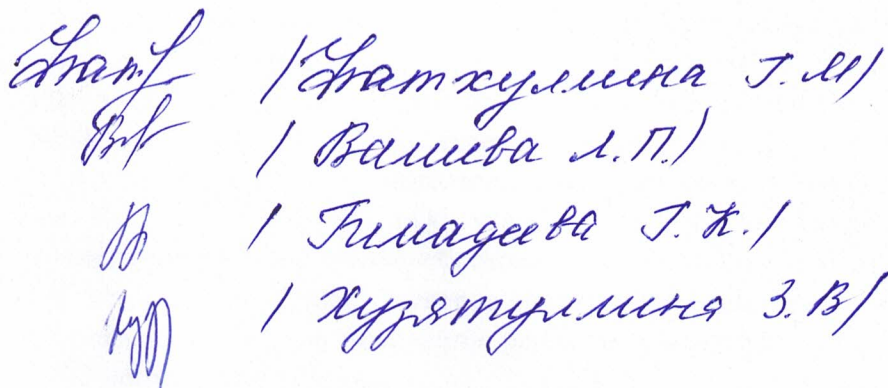 /Фатхуллина Г. М/
/ Валиева Л. П./
/ Гимадеева Г. К. /
/ Хузятуллина З. В/